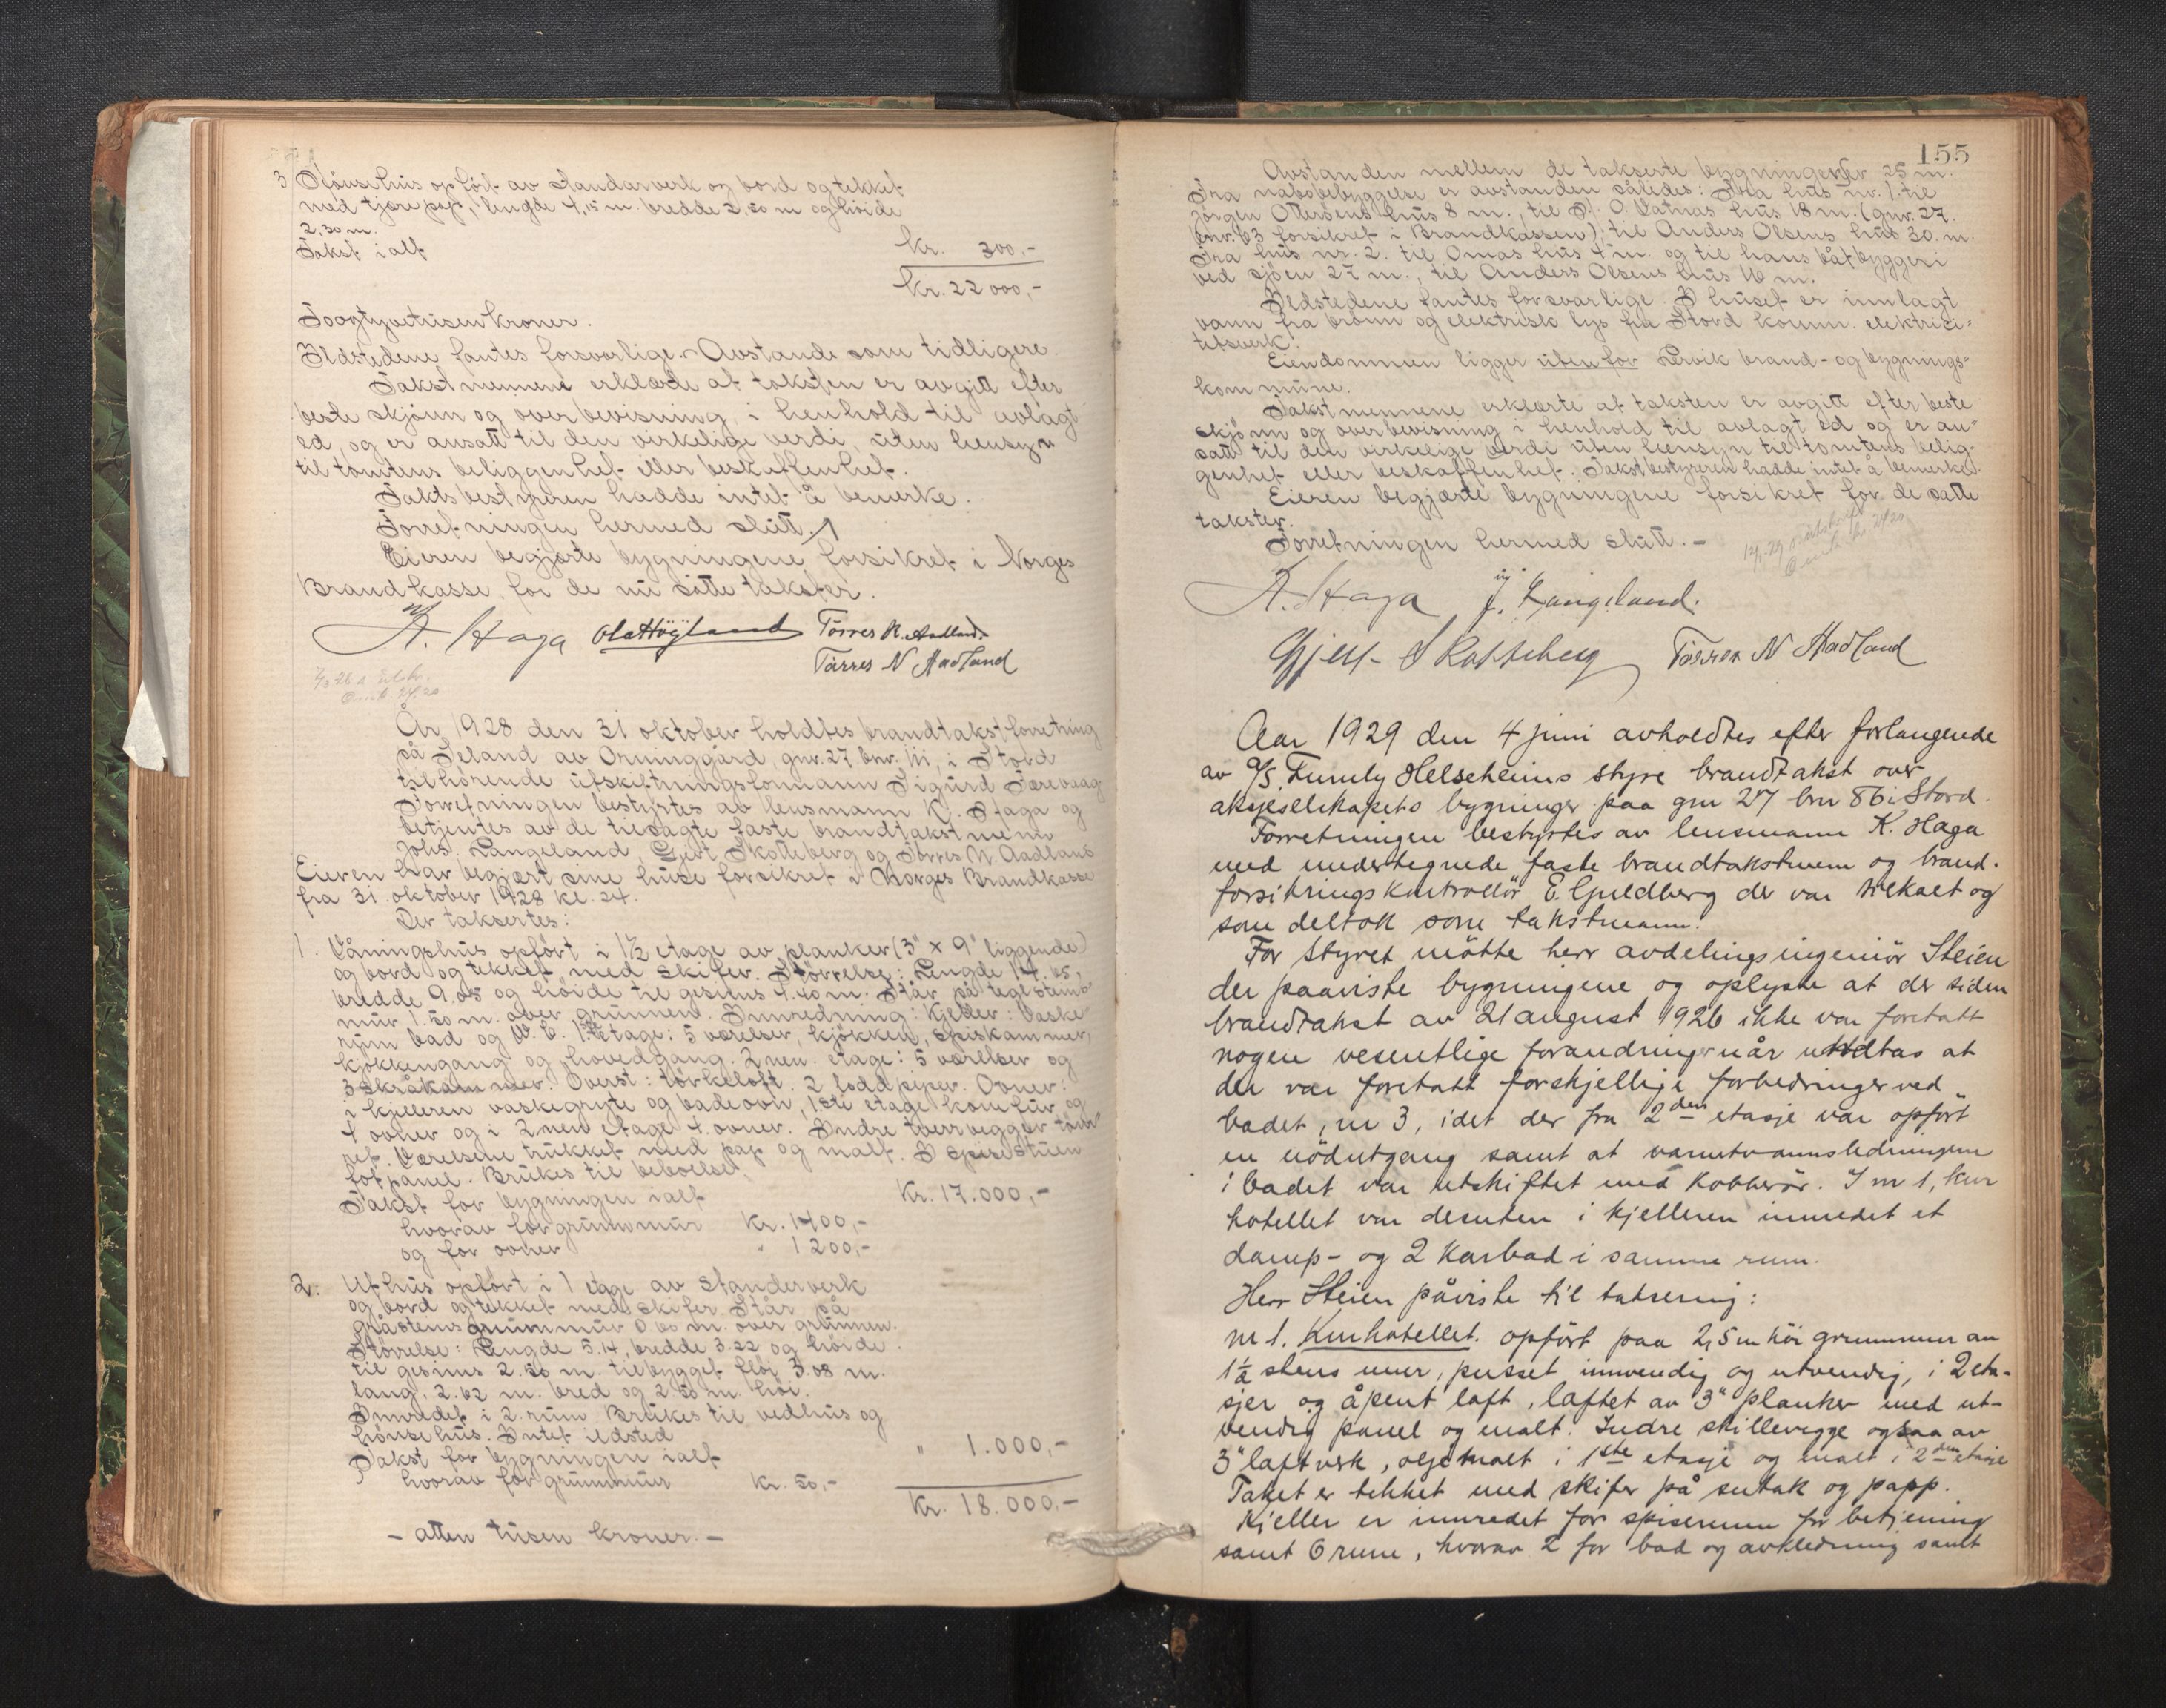 3 Hönsehus opfört av standarverk og bord og tekket
med tjærepap, lengde 4,15 m. bredde 2,20 m og höide
2,30 m.
Takst i alt kr. 300,-
kr. 22000,-
Toogtyvetusen kroner.
Ildstedene fantes forsvarlige. Avstande som tidligere
Takstmennene erklærte at taksten er avgitt efter
beste skjönn og overbevisning i henhold til avlagt
ed, og er ansatt til den virkelige verdi, uten hensyn
til tomtens beliggenhet eller beskaffenhet.
Takstbestyreren hadde intet å bemerke.
Forretningen hermed slutt.
Eieren begjærte bygningene forsikret i Norges
Brandkasse for de nu satte takster.
K. Haga Ola Höyland Törres N. Aadland.
Törres N Aadland
År 1928 den 31 oktober holdtes brandtakstforretning
på Leland av Orninggård, gnr. 27 bnr. 111, i Stord
tilhörende utskiftningsformann Sigurd Færevaag
Forretningen bestyrtes av lensmann K. Haga og
betjentes av de tilsagte faste brandtakstmenn
Johs. Langeland, Gjert Skotteberg og Törres N. Aadland
Eieren har begjært sine huse forsikret i Norges Brandkasse
fra 31. oktober 1928 kl. 24.
Der taksertes:
1. Våningshus opfört i 1½ etage av planker (3" x 9" liggende)
og bord og tekket med skifer. Störrelse: Lengde 14.65,
bredde 9.05 og höide til gesims 4.40 m. Står på teglstens
mur 1.50 m. over grunnen. Innredning: Kjeller: Vaske
rum bad og W. C. 1ste etage: 5 værelser, kjökken, spiskammer,
kjökkengang og hovedgang. 2nen etage: 5 værelser og
3 skråkammer. Överst: törkeloft. 2 loddpiper. Ovner:
i kjelleren vaskegryte og badeovn, 1ste etage komfur og
4 ovner og i 2nen etage 4 ovner. Indre tverrvegger töm
ret. Værelsene trukket med pap og malt. I spisestuen
fotpanel. Brukes til beboelse.
Takst for bygningen ialt Kr. 17.000,-
hvorav for grunnmur Kr. 1400,-
og for ovner " 1200,-
2. Uthus opfört i 1 etage av standerverk
og bord og tekket med skifer. Står på
gråstens grunnmur 0.60 m. over grunnen.
Störrelse: Lengde 5.14, bredde 3.22 og höide
til gesims 2.50 m. tilbygget flöi 3.08 m.
lang, 2.62 m. bred og 2.50 m. höi.
Innredet i 2 rum. Brukes til vedhus og
hönsehus. Intet ildsted
Takst for bygningen ialt " 1.000,-
hvorav for grunnmur Kr. 50,-
Kr. 18.000,-
- atten tusen kroner. -
155
Avstanden mellem de takserte bygninger er 25 m.
Fra nabobebyggelse er avstanden således: Fra hus nr. 1. til
Jörgen Ottersens hus 8 m., til O. Vatnas hus 18 m. (gnr. 27
bnr. 63 forsikret i Brandkassen); til Anders Olsens hus 30. m.
Fra hus nr. 2. til Omas hus 4 m. og til hans båtbyggeri
ved sjöen 27 m., til Anders Olsens hus 16 m.
Ildstedene fantes forsvarlige. I huset er innlagt
vann fra brönn og elektrisk lys fra Stord komm. elektrici-
tetsverk.
Eiendommen ligger utenfor Lervik brand- og bygnings-
kommune.
Takstmennene erklærte at taksten er avgitt efter beste
skjönn og overbevisning i henhold til avlagt ed og er an-
satt til den virkelige verdi uten hensyn til tomtens belig-
genhet eller beskaffenhet. Takstbestyreren hadde intet å bemerke.
Eieren begjærte bygningene forsikret for de satte
takster.
Forretningen hermed slutt. -
K. Haga J. Langeland.
Gjert Skotteberg Törres N Aadland
Aar 1929 den 4 juni avholdtes efter forlangende
av A/S Turnly Helseheims styre brandtakst over
aksjeselskapets bygninger paa gnr 27 bnr 86 i Stord.
Forretningen bestyrtes av lensmann K. Haga
med undertegnede faste brandtakstmenn og brand-
forsikringskontrollör E. Guldberg der var tilkalt og
som deltok som takstmann.
For styret mötte herr avdelingsingeniör Steien
der paaviste bygningene og oplyste at der siden
brandtakst av 21 august 1926 ikke var foretatt
nogen vesentlige forandringer når undtas at
der var foretatt forskjellige forbedringer ved
badet, nr 3, idet der fra 2den etasje var opfört
en nödutgang samt at varmtvannsledningen
i badet var utskiftet med kobberrör. I nr 1, kur
hotellet var desuten i kjelleren innredet et
damp- og 2 karbad i samme rum.
Herr Steien påviste til taksering:
nr 1. Kurhotellet. opfört paa 2,5 m höi grunnmur av
1½ stens mur, pusset innvendig og utvendig, i 2 eta-
sjer og åpent loft, laftet av 3" planker med ut-
vendig panel og malt. Indre skillevegge ogsaa av
3" laftverk, oljemalt i 1ste etasje og malt i 2den etasje
Taket er tekket med skifer på sutak og papp.
Kjeller er innredet for spiserum for betjening
samt 6 rum, hvorav 2 for bad og avkledning samt